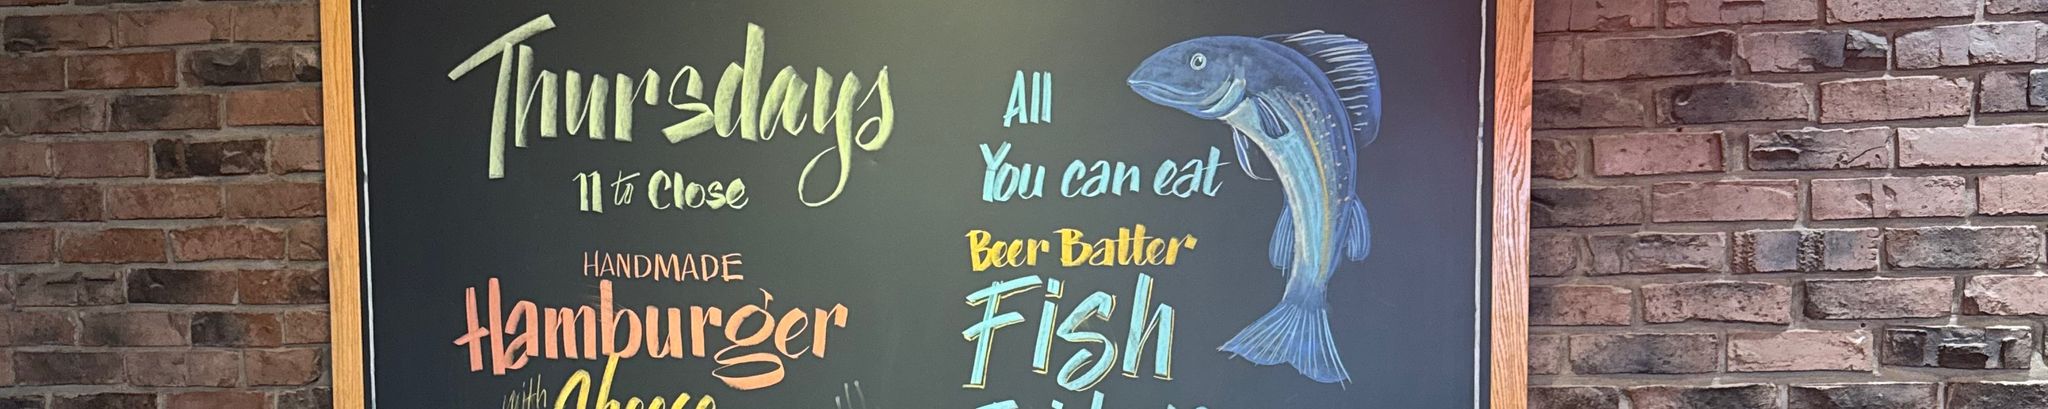 Thursdays
11 to Close
HANDMADE
Hamburger
with Cheese
All
You can eat
Beer Batter
Fish